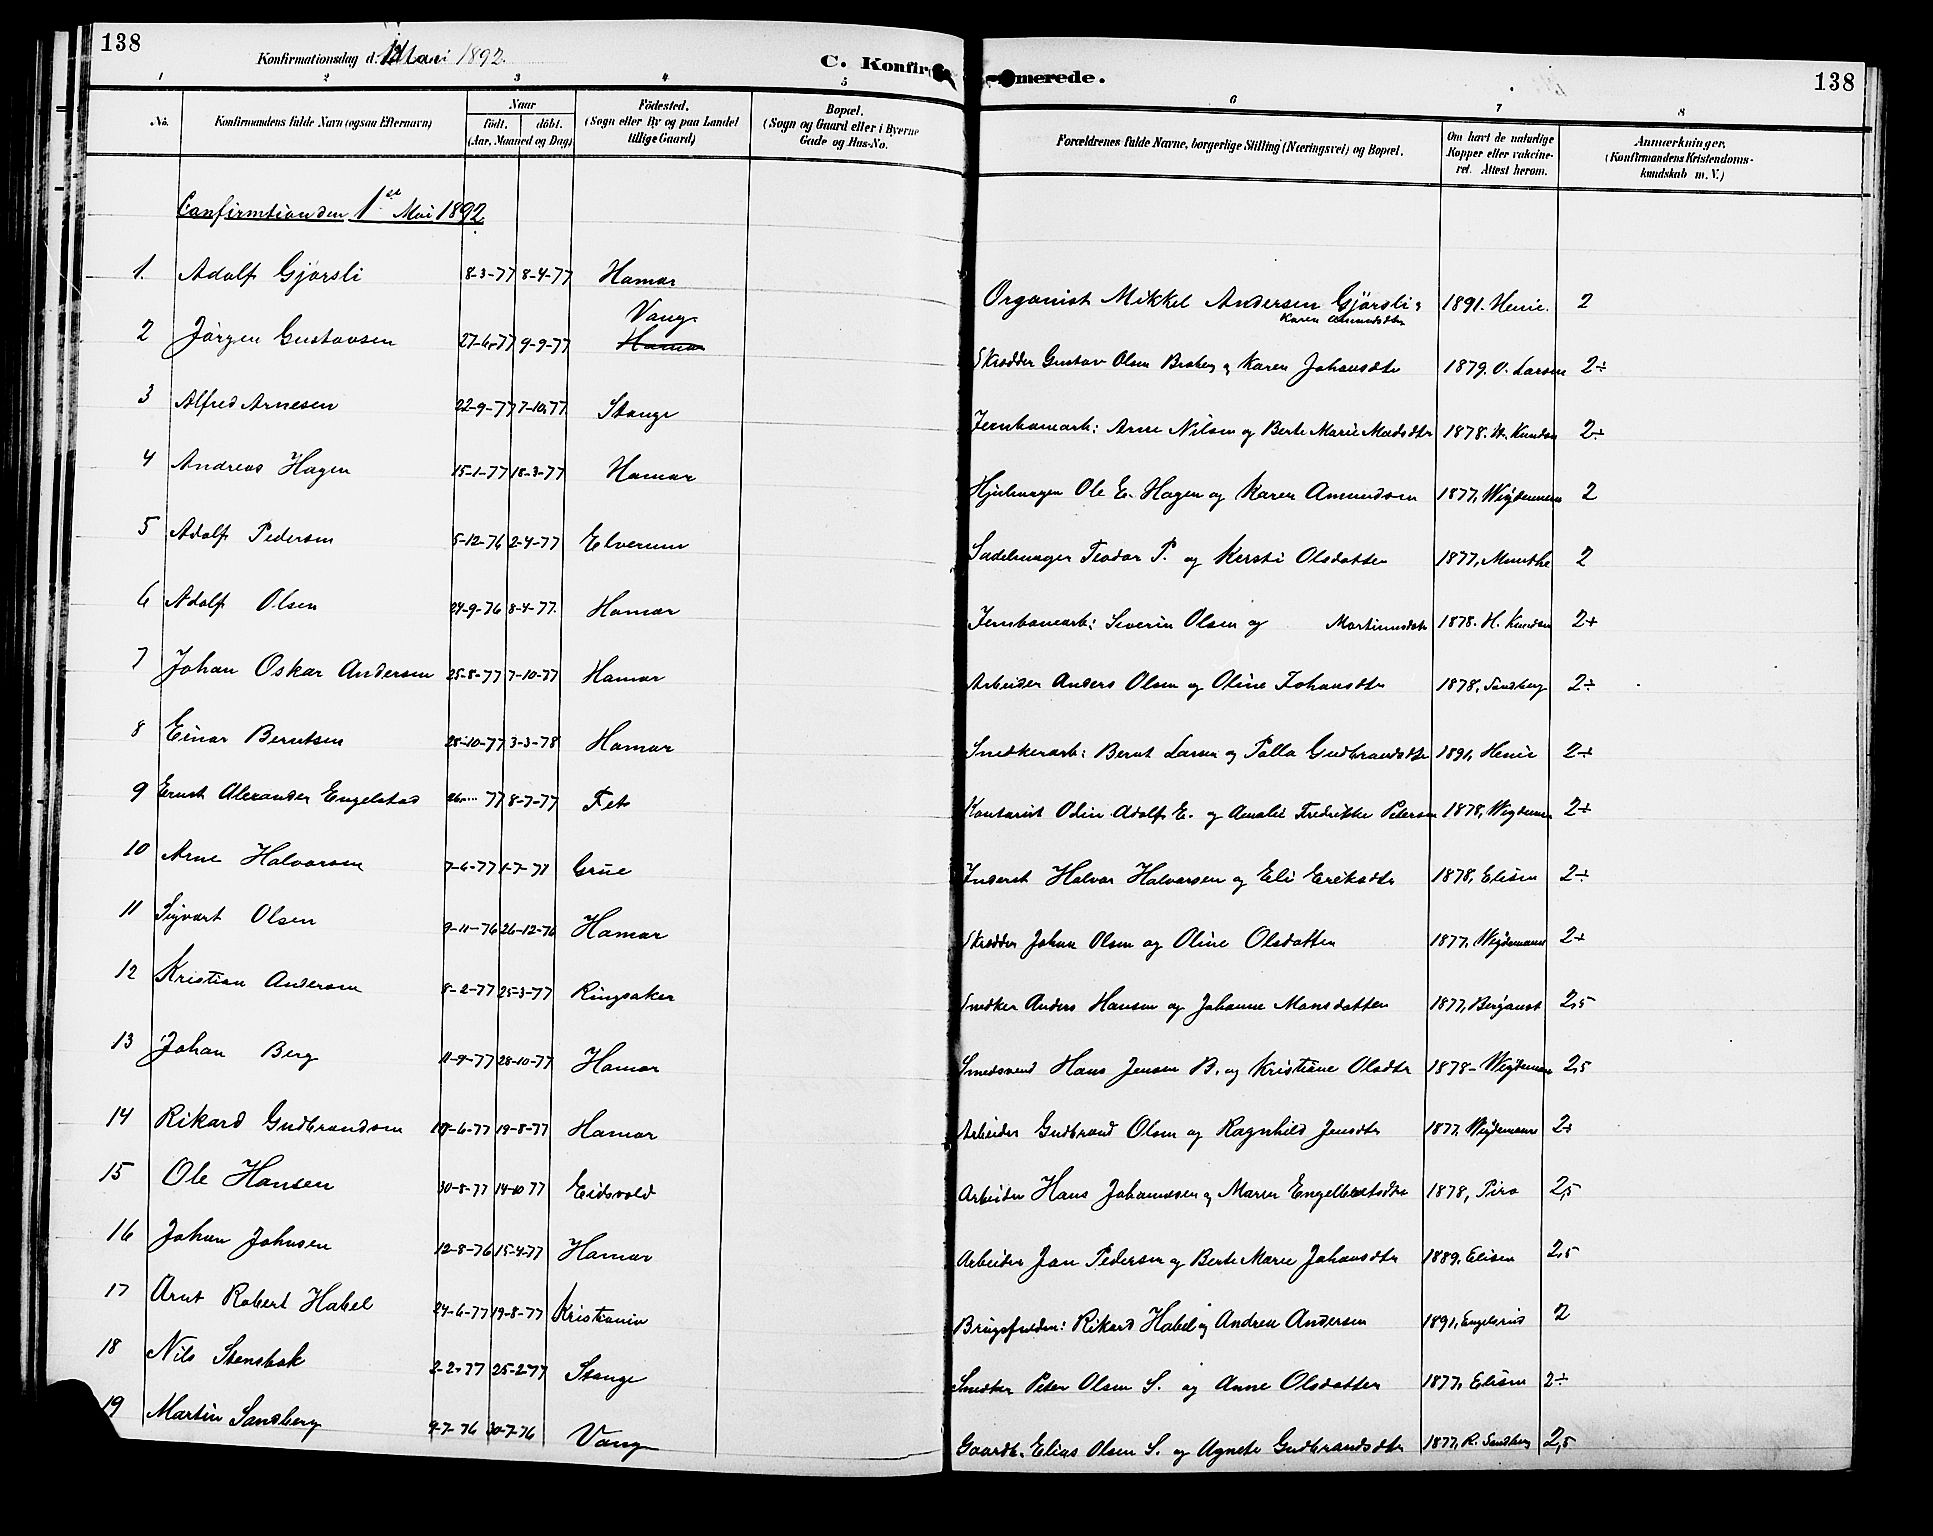 138
Konfirmationsdag d. 1 Mai 1892.
C. Konfirmerede.
138
1 2 3 4 5 6 7 8
No.
Konfirmandens fulde Navn (ogsaa Efternavn)
Naar
födt. döbt.
(Aar, Maaned og Dag)
Födested.
(Sogn eller By og paa Landet
tillige Gaard)
Bopæl.
(Sogn og Gaard eller i Byerne
Gade og Hus-No.
Forældrenes fulde Navne, borgerlige Stilling (Næringsvei) og Bopæl.
Om havt de naturlige
Kopper eller vakcine-
ret. Attest herom.
Anmærkninger.
(Konfirmandens Kristendoms-
kundskab m. V.)
Confirmtion den 1ste Mai 1892
1. Adolf Gjörsli 8-3-77 8-4-77 Hamar Organist Mikkel Andersen Gjörsli & Karen Amundsdtr 1891. Henie. 2
2 Jörgen Gustavsen 27-6-77 9-9-77 Vang Hamar Skrædder Gustav Olsen Broberg og Karen Johansdtr 1879. O. Larsen 2÷
3 Alfred Arnesen 22-9-77 7-10-77 Stange Jernbanearb: Arne Nilsen og Berte Marie Madsdtr 1878. H. Knudsen 2÷
4 Andreas Hagen 15-1-77 18-3-77 Hamar Hjulmager Ole E. Hagen og Karen Amundsen 1877, Weydemann 2
5 Adolf Pedersen 5-12-76 2-4-77 Elverum Sadelmager Teodor P. og Kersti Olsdatter 1877, Munthe 2
6 Adolf Olsen 24-9-76 8-4-77. Hamar Jernbanearb: Severin Olsen og Martinusdtr 1878. H. Knudsen 2+
7 Johan Oskar Andersen 25-8-77 7-10-77 Hamar Arbeider Anders Olsen og Oline Johansdtr 1878, Sandberg 2÷
8 Einar Berntsen 28-10-77 3-3-78 Hamar Snedkerarb: Bernt Larsen og Palla Gudbrandsdtr 1891, Henie 2÷
9 Ernst Alexander Engelstad 26-... 77 8-7-77 Fet Kontorist Odin Adolf E. og Amalie Fredrikke Petersen 1878, Weydemann 2÷
10 Arne Halvorsen 7-6-77 1-7-77 Grue Inderst Halvor Halvorsen og Eli Eriksdtr 1878, Elisen 2÷
11 Sigvart Olsen 9-11-76 26-12-76 Hamar Skrædder Johan Olsen og Oline Olsdatter 1877, Weydemann 2÷
12 Kristian Andersen 8-2-77 25-3-77 Ringsaker Snedker Anders Hansen og Johanne Monsdatter 1877, 2,5
13 Johan Berg 11-9-77 28-10-77 Hamar Smedsvend Hans Jensen B. og Kristine Olsdtr 1878- Weydemann 2,5
14 Rikard Gudbrandsen -6-77 19-8-77 Hamar Arbeider Gudbrand Olsen og Ragnhild Jensdtr 1877. Weydemann 2÷
15 Ole Hansen 30-8-77 14-10 77 Eidsvold Arbeider Hans Johannesen og Maren Engelbretsdtr 1878, Piro 2,5
16 Johan Johnsen 12-8-76 15-4-77 Hamar Arbeider Jon Pedersen og Berte Marie Johansdtr 1889, Elisen 2,5
17 Arnt Robert Habel 24-6-77 19-8-77 Kristiania Rikard Habel og Andrea Andersen 1891, Engelsrud 2
18 Nils Stensbak 2-2-77 25-2-77 Stange Snedker Peter Olsen S. og Anne Olsdatter 1877, Elisen 2÷
19 Martin Sandberg 9-7-76 30-7-76 Vang Gaardb. Elias Olsen S. og Agnete Gudbrandsdtr 1877, R. Sandberg 2,5